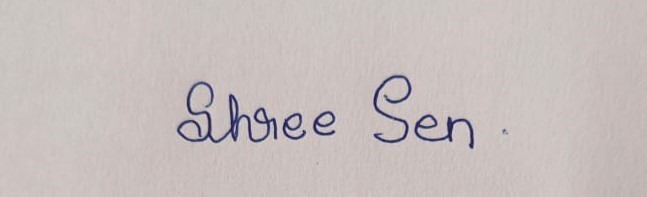 Shree Sen.